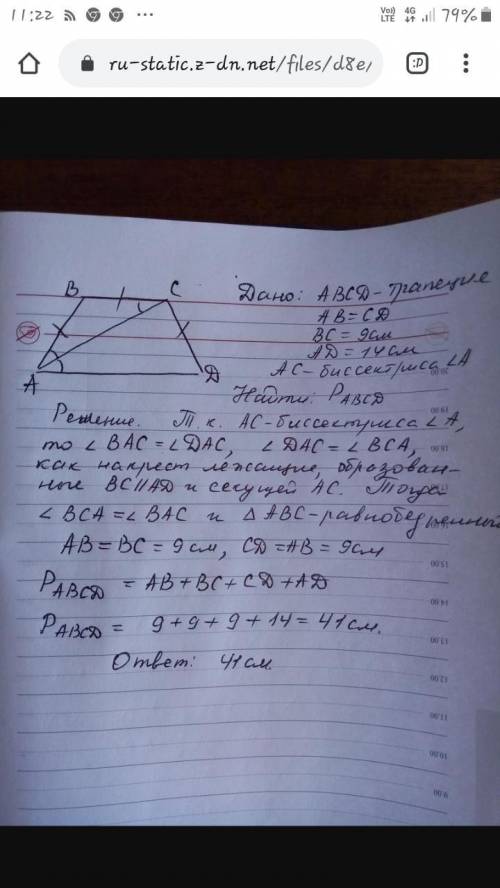 11:22 ... Vo)) LTE 4G 79%
ru-static.z-dn.net/files/d8e/ :D
B C
A D
Дано: ABCD - трапеция
AB = CD
BC = 9см
AD = 14 см
AC - биссектриса ∠A
Найти: P ABCD
Решение. Т. к. AC - биссектриса ∠A,
то ∠BAC = ∠DAC, ∠DAC = ∠BCA,
как накрест лежащие, образован-
ные BC∥AD и секущей AC. Тогда
∠BCA = ∠BAC и △ABC - равнобедренный
AB = BC = 9 см, CD = AB = 9см
P ABCD = AB + BC + CD + AD
P ABCD = 9 + 9 + 9 + 14 = 41 см.
Ответ: 41 см.
15.00
14.00
13.00
12.00
11.00
10.00
9.00